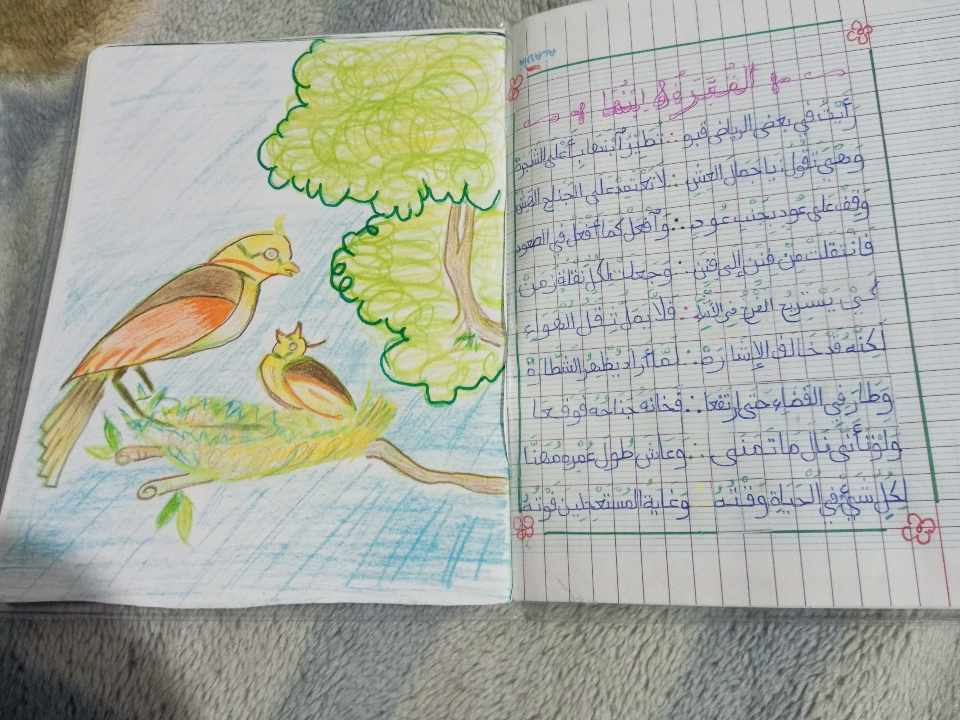 القُبَّرَةُ وابْنُهَا
رَأَيْتُ فِي بَعْضِ الرياض قبرة ∴ تُطَيِّرُ آبْنَهَا بِأَعْلَى الشجرة
وَهْيَ تَقُولُ يا جَمَال العش ∴ لا تعْتَمِدْ على الجناح الهش
وَقِفْ على عُودٍ بِجَنْبِ عُودِ ∴ وَآفْعَلْ كما أَفْعَلُ في الصعود
فَانْتَقَلَتْ مِنْ فَنَنٍ إلى فنن ∴ وَجعلت لكل نقلة زمن
كَيْ يَسْتَرِيحَ الفرخ في الأثناء ∴ وَلَا يَمَلَّ ثِقَلُ الهواء
لَكِنَّهُ قَدْ خَالَفَ الإِشَارَةْ ∴ لَمَّا أراد يُظْهِرُ الشَّطَارَةْ
وَطَارَ في الفضاء حتى ارتفعا ∴ فخانه جَنَاحُهُ فوقعا
وَلَوْ تَأَنَّى نَال ما تَمَنَّى ∴ وعاش طُول عُمْرِهِ مُهَنَّا
لِكُلِّ شَيْءٍ في الحَيَاةِ وَقْتُهُ وَغايةُ المُسْتَعْجِلين فَوْتُهُ